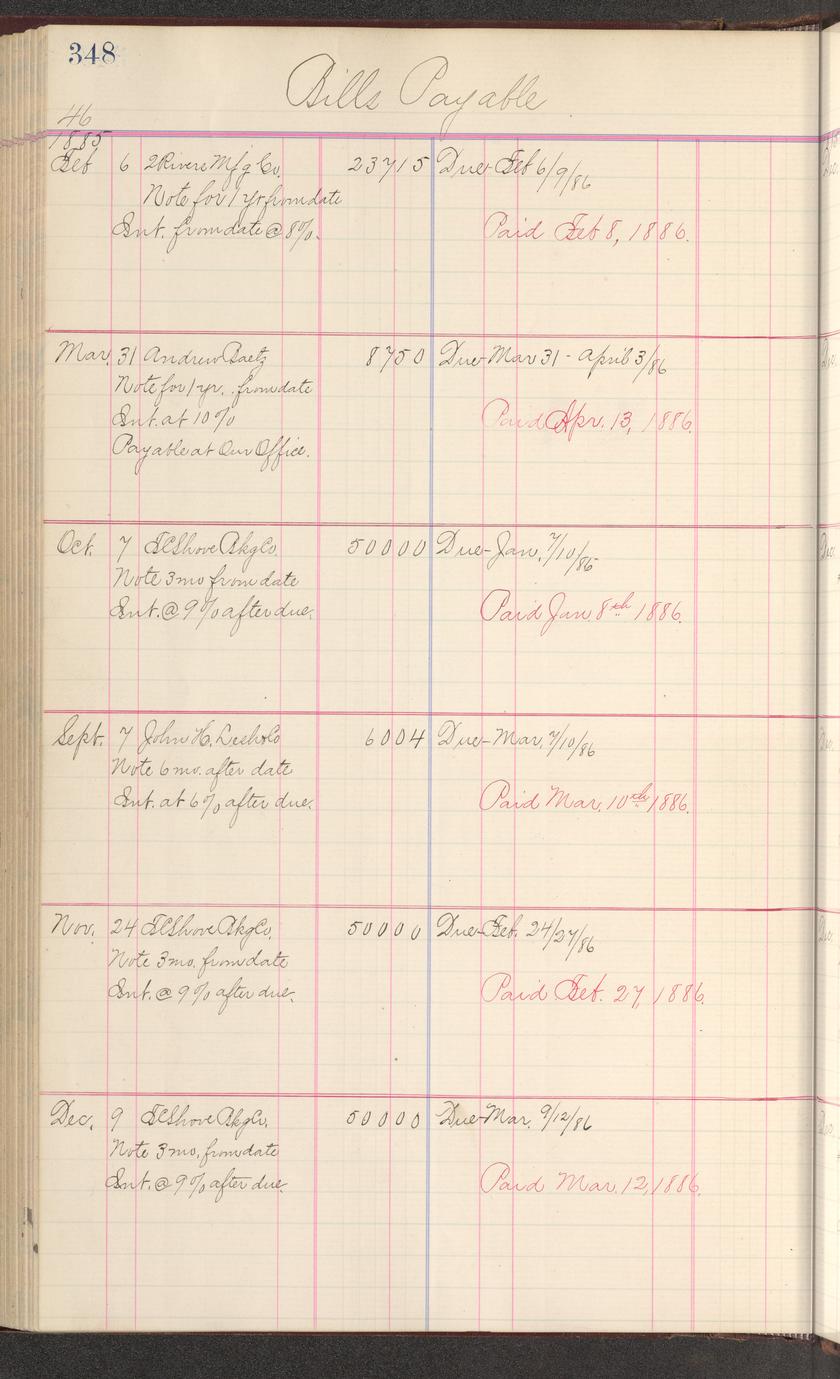 348
Bills Payable
46
1885
Feb 6 2 Rivers Mfg Co. 237 15 Due Feb 6/9/86
Note for 1 yr from date
Int. from date @ 8%. Paid Feb 8, 1886.
Mar. 31 Andrew Baetz 87 50 Due Mar 31 - April 3/86
Note for 1 yr. from date
Int. at 10% Paid Apr. 13, 1886.
Payable at Our Office.
Oct. 7 T C Shove Bkg Co. 500 00 Due - Jan. 7/10/86
Note 3 mo from date
Int. @ 9% after due. Paid Jan. 8th 1886.
Sept. 7 John H. Co 60 04 Due - Mar. 7/10/86
Note 6 mo. after date
Int. at 6% after due. Paid Mar. 10th 1886.
Nov. 24 T C Shove Bkg Co. 500 00 Due Feb. 24/27/86
Note 3 mo. from date
Int. @ 9% after due. Paid Feb. 27, 1886.
Dec. 9 T C Shove Bkg Co. 500 00 Due Mar. 9/12/86
Note 3 mo. from date
Int. @ 9% after due. Paid Mar. 12, 1886.